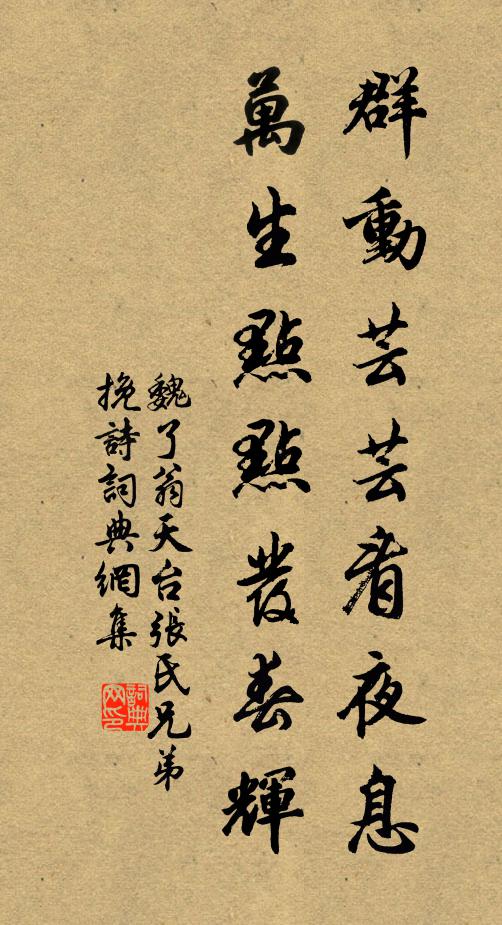 群動芸芸看夜息
萬生點點發春輝
魏了翁天台張氏兄弟
挽詩詞典網集
詞典网印